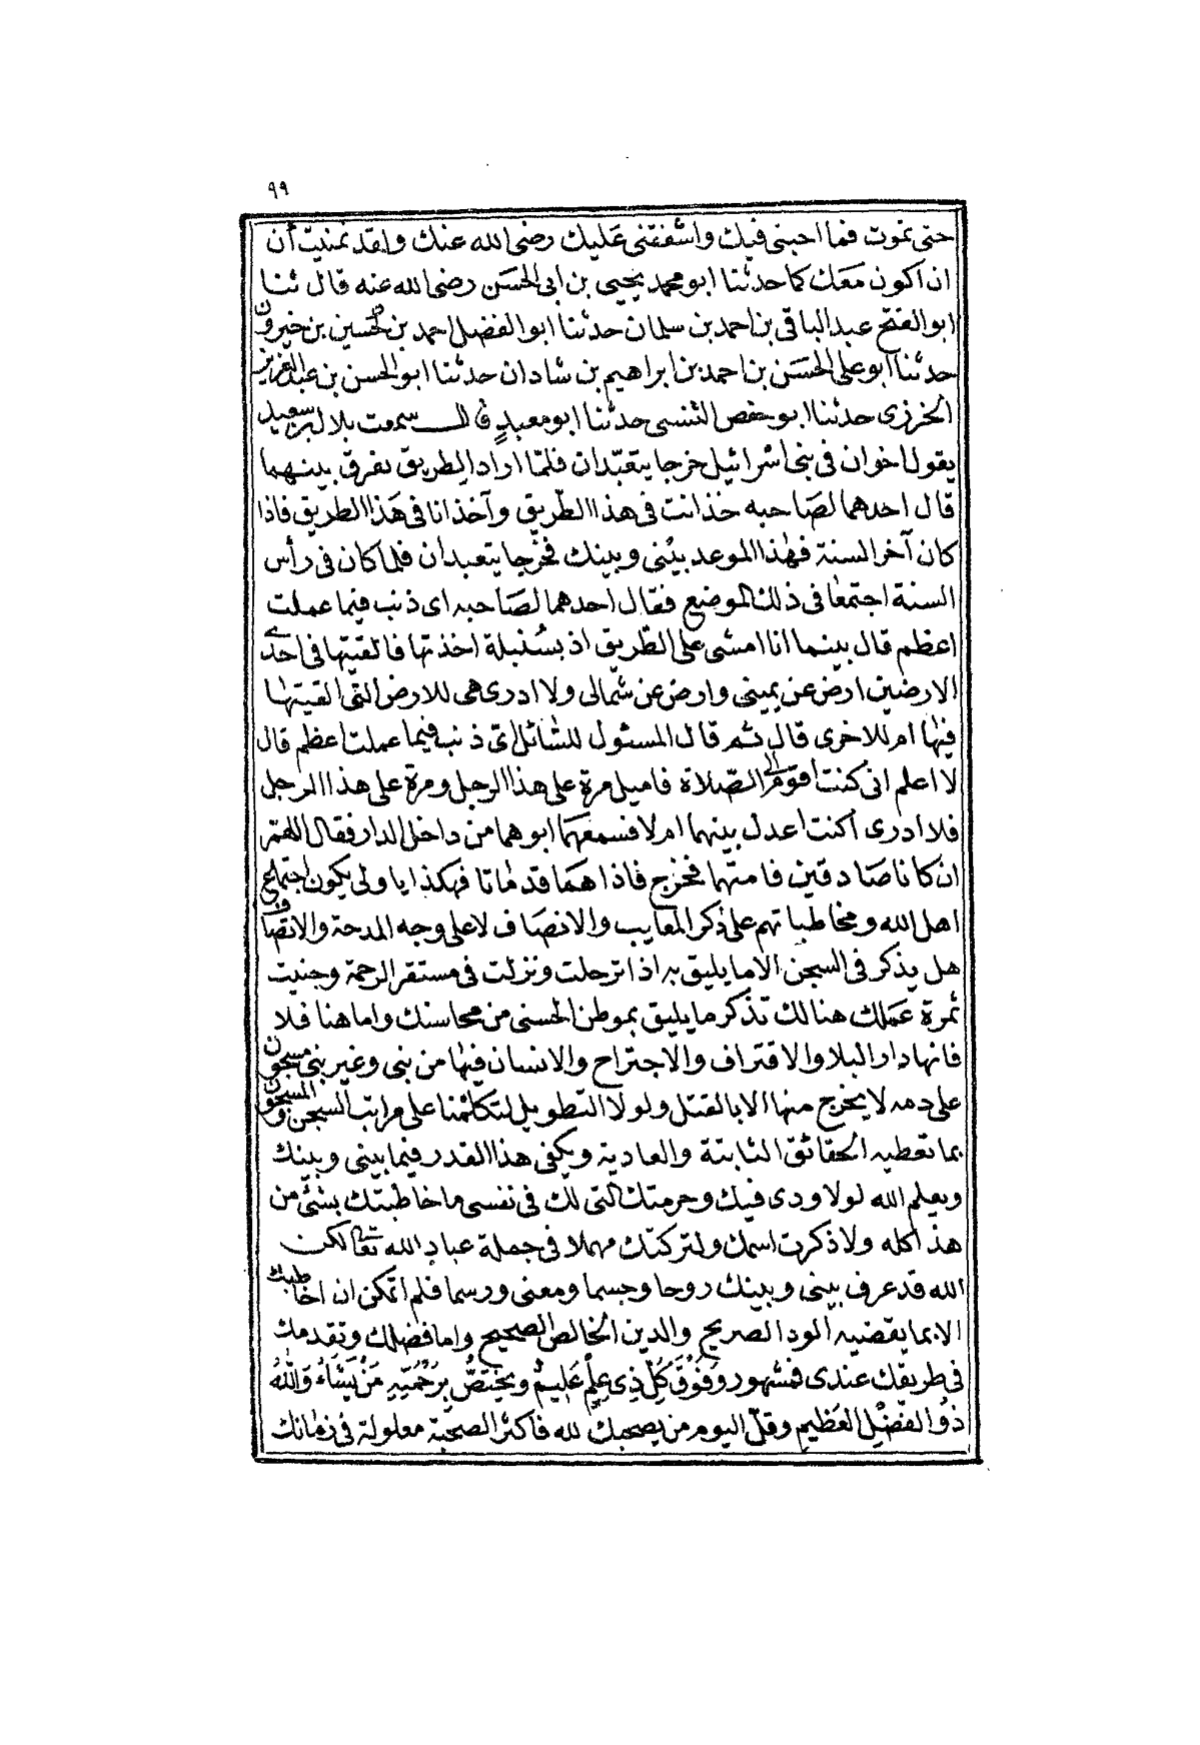 ٩٩
حتى تموت فما احبنى فيك واشفقنى عليك رضى الله عنك ولقد تمنيت أن
ان اكون معك كما حدثنا ابو محمد يحيى بن ابى الحسن رضى الله عنه قال ثنا
ابو الفتح عبد الباقى بن احمد بن سلمان حدثنا ابو الفضل احمد بن الحسين بن خيرون
حدثنا ابو على الحسن بن احمد بن ابراهيم بن شادان حدثنا ابو الحسن بن عبد العزيز
الخرزى حدثنا ابو حفص التنسى حدثنا ابو معبد قال سمعت بلال بن سعيد
يقول اخوان فى بنى اسرائيل خرجا يتعبدان فلمّا اراد الطريق تفرق بينهما
قال احدهما لصاحبه خذ انت فى هذا الطريق وآخذ انا فى هَذا الطريق فاذا
كان آخر السنة فهذا الموعد بينى وبينك فخرجا يتعبدان فلما كان فى رأس
السنة اجتمعا فى ذلك الموضع فقال احدهما لصاحبه اى ذنب فيما عملت
اعظم قال بينما انا امشى على الطريق اذ بسُنبلة اخذتها فالقيتها فى احدى
الارضين ارض عن يمينى وارض عن شمالى ولا ادرى هى للارض التى القيتها
فيها ام للاخرى قال ثم قال المسئول للسّائل اىّ ذنب فيما عملت اعظم قال
لا اعلم انى كنت اقوم الى الصّلاة فاميل مرة على هذا الرجل ومرة على هذا الرجل
فلا ادرى اكنت اعدل بينهما ام لا فسمعهما ابوهما من داخل الدار فقال اللهم
ان كانا صادقين فامتهما فخرج فاذا هما قد ماتا فهكذا يا ولى يكون اجتماع
اهل الله ومخاطباتهم على ذكر المعايب والانصاف لا على وجه المدحة والاتصاف
هل يذكر فى السجن الا ما يليق به اذا ترحلت ونزلت فى مستقر الرحمة وجنيت
ثمرة عَملك هنالك تذكر ما يليق بموطن الحسنى من محاسنك واما هنا فلا
فانها دار البلا والاقتراف والاجتراح والانسان فيها من بنى وغير بنى مسجون
على دمه لا يخرج منها الا بالقتل ولولا التطويل لتكلّمنا على مراتب السجن والمسجون
بما تعطيه الحقائق الثابتة والعادية ويكفى هذا القدر فيما بينى وبينك
ويعلم الله لولا ودى فيك وحرمتك التى لك فى نفسى ما خاطبتك بشئ من
هذا كله ولا ذكرت اسمك ولتركتك مهملا فى جملة عباد الله تعالى لكن
الله قد عرف بينى وبينك روحا وجسما ومعنى ورسما فلم اتمكن ان اخاطبك
الا بما يقضيه الود الصريح والدين الخالص الصحيح واما فضلك وتقدمك
فى طريقك عندى فمشهور وَفَوْقَ كُلِّ ذِى عِلْمٍ عَلِيمٌ ويَخْتَصُّ بِرَحْمَتِهِ مَنْ يَشَاءُ وَاللهُ
ذُو الفَضْلِ العَظِيمِ وقلّ اليوم من يصحبك لله فاكثر الصحبة معلولة فى زمانك